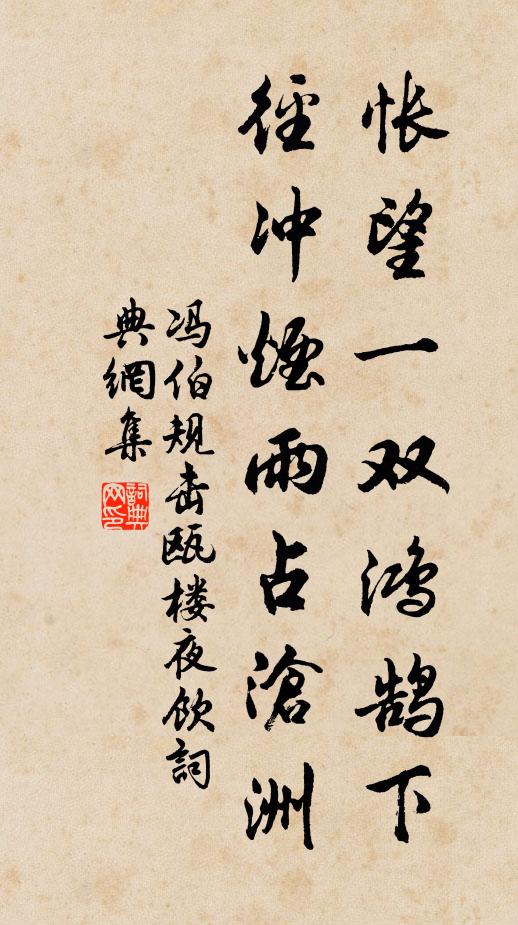 怅望一双鸿鹄下
径冲煙雨占滄洲
冯伯规击瓯楼夜饮詞
典網集
詞典
网印